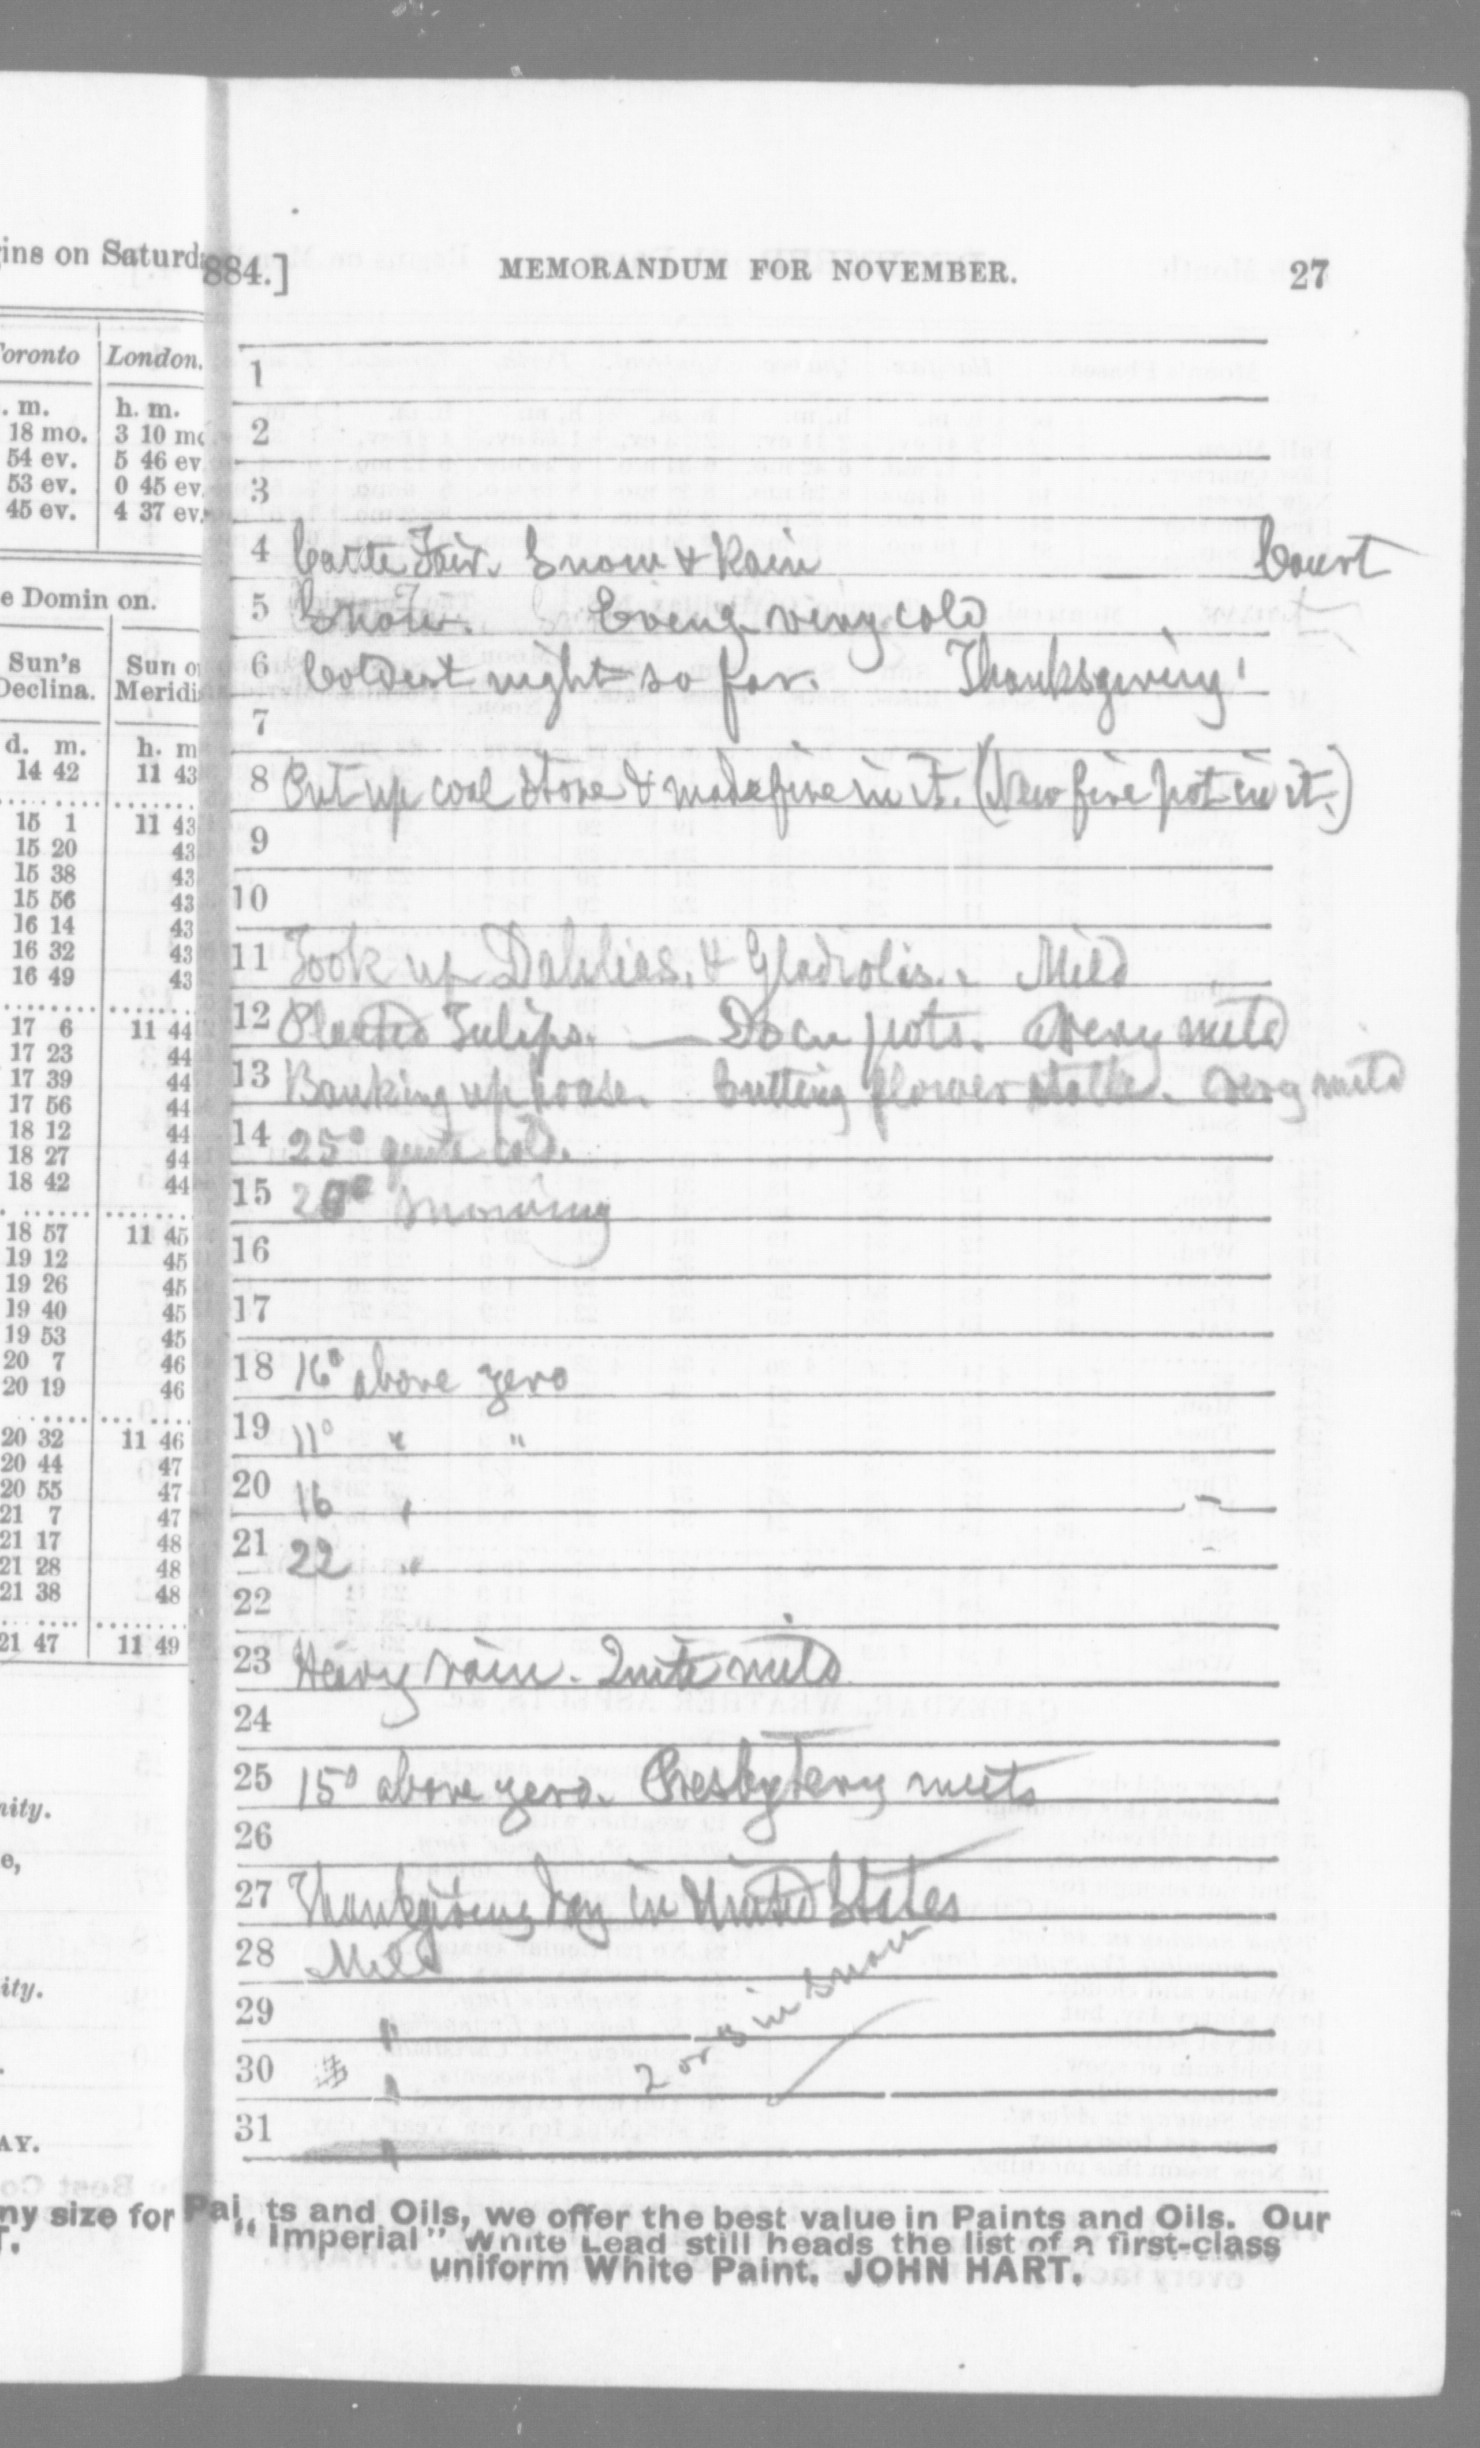 ins on Saturda
Toronto London.
. m. h. m.
18 mo. 3 10 mo
54 ev. 5 46 ev.
53 ev. 0 45 ev.
45 ev. 4 37 ev.
e Domin on.
Sun's Sun o
Declina. Meridi
d. m. h. m
14 42 11 43
15 1 11 43
15 20 43
15 38 43
15 56 43
16 14 43
16 32 43
16 49 43
17 6 11 44
17 23 44
17 39 44
17 56 44
18 12 44
18 27 44
18 42 44
18 57 11 45
19 12 45
19 26 45
19 40 45
19 53 45
20 7 46
20 19 46
20 32 11 46
20 44 47
20 55 47
21 7 47
21 17 48
21 28 48
21 38 48
21 47 11 49
nity.
e,
ity.
AY.
ny size for
T.
884.] MEMORANDUM FOR NOVEMBER. 27
1
2
3
4 Cattle Fair. Snow & Rain Court
5 Snow. Eveng very cold
6 Coldest night so far. Thanksgiving
7
8 Put up coal stove & made fire in it. (New fire pot in it.)
9
10
11 Took up Dahlias. & Gladiolis. Mild
12 Planted Tulips. — Do in pots. Very mild
13 Banking up house. Cutting flower stalks. Very mild
14 25° quite cold.
15 morning
16
17
18 16° above zero
19 11° " "
20 16 "
21 22 "
22
23 Heavy rain. Quite mild
24
25 15° above zero. Presbytery meets
26
27 Thanksgiving Day in United States
28 Mild
29 "
30 " 2 or 3 in snow
31 "
Pai ts and Oils, we offer the best value in Paints and Oils. Our
"Imperial" White Lead still heads the list of a first-class
uniform White Paint. JOHN HART.